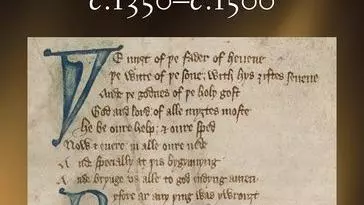 c.1350–c.1500
ÞE miȝt of þe fader of heuene
Þe witte of þe sone, with hys ȝiftes seuene
And þe godnes of þe holy gost
God and lord of alle myȝtes moste
He be oure help ⁊ oure sped
Now ⁊ euere in alle oure ned
And specially at þis bygynnyng
And brynge us alle to god endyng amen
Byfore ar any þing was ywroȝt